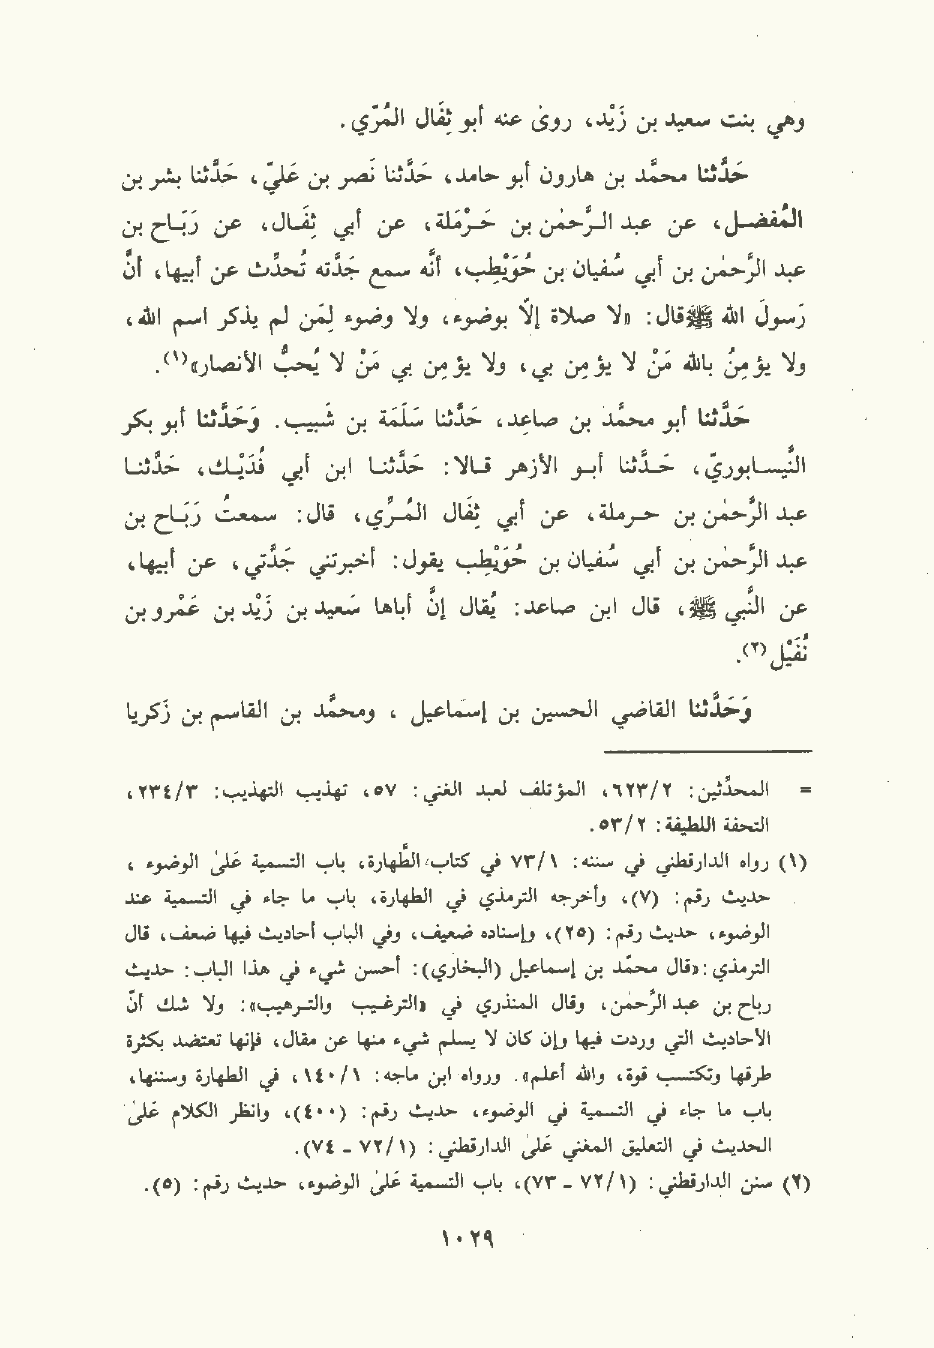 وهي بنت سعيد بن زَيْد، روىٰ عنه أبو ثِفَال المُرّي.
حَدَّثنا محمَّد بن هارون أبو حامد، حَدَّثنا نَصر بن عَليّ، حَدَّثنا بشر بن
المُفضـل، عن عبد الـرَّحمٰن بن حَرْمَلة، عن أبي ثِفَـال، عن رَبَـاح بن
عبد الرَّحمٰن بن أبي سُفيان بن حُوَيْطِب، أنَّه سمع جَدَّته تُحدِّث عن أبيها، أنَّ
رَسولَ الله ﷺ قال: «لا صلاة إلَّا بوضوء، ولا وضوء لِمَن لم يذكر اسم الله،
ولا يؤمِنُ بالله مَنْ لا يؤمِن بي، ولا يؤمِن بي مَنْ لا يُحبُّ الأنصار»(١).
حَدَّثنا أبو محمَّد بن صاعد، حَدَّثنا سَلَمَة بن شَبيب. وَحَدَّثنا أبو بكر
النَّيسـابوريّ، حَـدَّثنا أبـو الأزهر قـالا: حَدَّثنـا ابن أبي فُدَيْـك، حَدَّثنـا
عبد الرَّحمٰن بن حرملة، عن أبي ثِفَال المُـرِّي، قال: سمعتُ رَبَـاح بن
عبد الرَّحمٰن بن أبي سُفيان بن حُوَيْطِب يقول: أخبرتني جَدَّتي، عن أبيها،
عن النَّبي ﷺ، قال ابن صاعد: يُقال إنَّ أباها سَعيد بن زَيْد بن عَمْرو بن
نُفَيْل(٢).
وَحَدَّثنا القاضي الحسين بن إسماعيل، ومحمَّد بن القاسم بن زَكريا
= المحدِّثين: ٦٢٣/٢، المؤتلف لعبد الغني: ٥٧، تهذيب التهذيب: ٢٣٤/٣،
التحفة اللطيفة: ٥٣/٢.
(١) رواه الدارقطني في سننه: ٧٣/١ في كتاب الطَّهارة، باب التسمية عَلىٰ الوضوء،
حديث رقم: (٧)، وأخرجه الترمذي في الطهارة، باب ما جاء في التسمية عند
الوضوء، حديث رقم: (٢٥)، وإسناده ضعيف، وفي الباب أحاديث فيها ضعف، قال
الترمذي: «قال محمد بن إسماعيل (البخاري): أحسن شيء في هذا الباب: حديث
رباح بن عبد الرَّحمٰن، وقال المنذري في «الترغيب والترهيب»: ولا شك أنَّ
الأحاديث التي وردت فيها وإن كان لا يسلم شيء منها عن مقال، فإنها تعتضد بكثرة
طرقها وتكتسب قوة، والله أعلم». ورواه ابن ماجه: ١٤٠/١، في الطهارة وسننها،
باب ما جاء في التسمية في الوضوء، حديث رقم: (٤٠٠)، وانظر الكلام عَلىٰ
الحديث في التعليق المغني عَلىٰ الدارقطني: (٧٢/١ - ٧٤).
(٢) سنن الدارقطني: (٧٢/١ - ٧٣)، باب التسمية عَلىٰ الوضوء، حديث رقم: (٥).
١٠٢٩